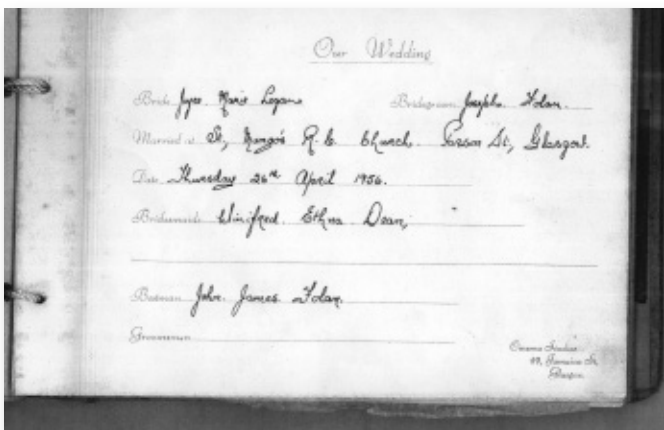 Our Wedding
Bride Joyce Marie Logan Bridegroom Joseph Folan.
Married at St, Mungo's R.C. Church. Parson St, Glasgow.
Date Thursday 26th April 1956.
Bridesmaids Winifred Ethna Dean,
Bestman John James Folan.
Groomsman
Cinema Studios
49, Jamaica St,
Glasgow.